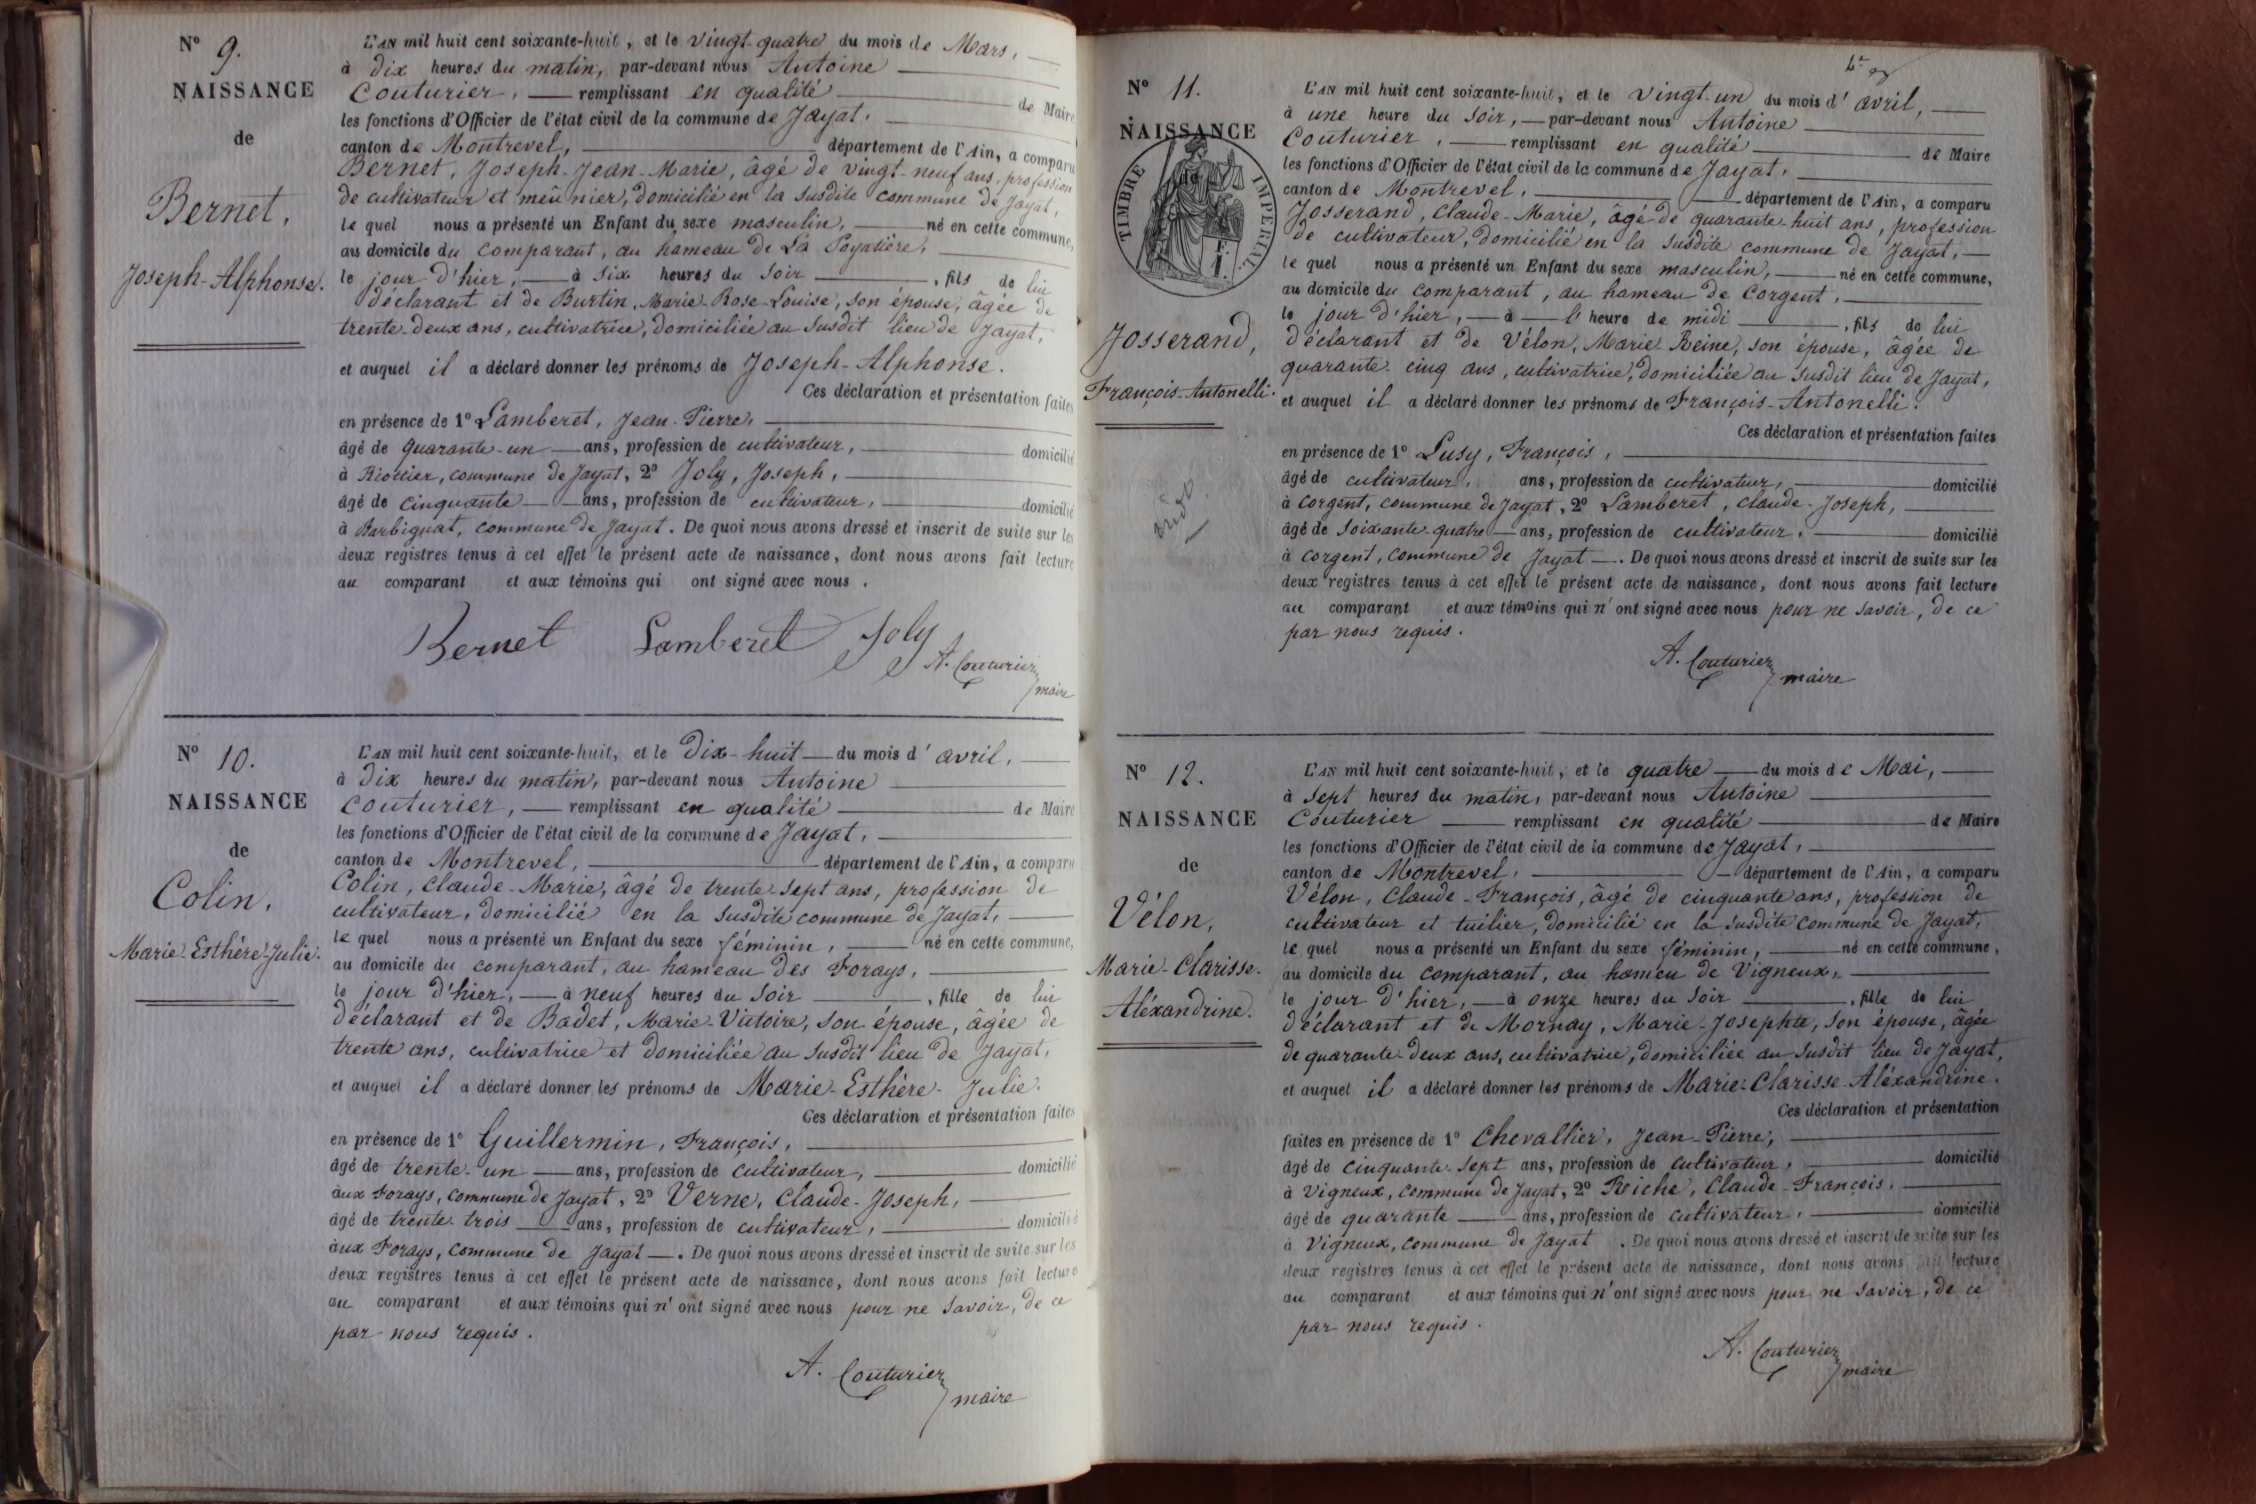 N° 9.
NAISSANCE
de
Bernet,
Joseph-Alphonse.
L'AN mil huit cent soixante-huit, et le vingt-quatre du mois de Mars,
à dix heures du matin, par-devant nous Antoine
Couturier, remplissant en qualité de Maire
les fonctions d'Officier de l'état civil de la commune de Jayat,
canton de Montrevel, département de l'Ain, a comparu
Bernet, Joseph-Jean-Marie, âgé de vingt-neuf ans, profession
de cultivateur et meûnier, domicilié en la susdite commune de Jayat,
le quel nous a présenté un Enfant du sexe masculin, né en cette commune,
au domicile du comparant, au hameau de La Poyatière,
le jour d'hier, à six heures du soir, fils de lui
déclarant et de Burtin, Marie-Rose-Louise, son épouse, âgée de
trente-deux ans, cultivatrice, domiciliée au susdit lieu de Jayat,
et auquel il a déclaré donner les prénoms de Joseph-Alphonse.
Ces déclaration et présentation faites
en présence de 1° Lamberet, Jean-Pierre,
âgé de quarante-un ans, profession de cultivateur, domicilié
à Riottier, commune de Jayat, 2° Joly, Joseph,
âgé de cinquante ans, profession de cultivateur, domicilié
à Barbignat, commune de Jayat. De quoi nous avons dressé et inscrit de suite sur les
deux registres tenus à cet effet le présent acte de naissance, dont nous avons fait lecture
au comparant et aux témoins qui ont signé avec nous.
Bernet Lamberet Joly
A. Couturier
maire
N° 10.
NAISSANCE
de
Colin,
Marie-Esthère-Julie.
L'AN mil huit cent soixante-huit, et le dix-huit du mois d'avril,
à dix heures du matin, par-devant nous Antoine
Couturier, remplissant en qualité de Maire
les fonctions d'Officier de l'état civil de la commune de Jayat,
canton de Montrevel, département de l'Ain, a comparu
Colin, Claude-Marie, âgé de trente-sept ans, profession de
cultivateur, domicilié en la susdite commune de Jayat,
le quel nous a présenté un Enfant du sexe féminin, né en cette commune,
au domicile du comparant, au hameau des Forays,
le jour d'hier, à neuf heures du soir, fille de lui
déclarant et de Badet, Marie-Victoire, son épouse, âgée de
trente ans, cultivatrice et domiciliée au susdit lieu de Jayat,
et auquel il a déclaré donner les prénoms de Marie-Esthère-Julie.
Ces déclaration et présentation faites
en présence de 1° Guillermin, François,
âgé de trente-un ans, profession de cultivateur, domicilié
aux Forays, commune de Jayat, 2° Verne, Claude-Joseph,
âgé de trente-trois ans, profession de cultivateur, domicilié
aux Forays, commune de Jayat. De quoi nous avons dressé et inscrit de suite sur les
deux registres tenus à cet effet le présent acte de naissance, dont nous avons fait lecture
au comparant et aux témoins qui n'ont signé avec nous pour ne savoir, de ce
par nous requis.
A. Couturier
maire
N° 11.
NAISSANCE
TIMBRE IMPERIAL
1 F.
Josserand,
François-Antonelli.
L'AN mil huit cent soixante-huit, et le vingt-un du mois d'avril,
à une heure du soir, par-devant nous Antoine
Couturier, remplissant en qualité de Maire
les fonctions d'Officier de l'état civil de la commune de Jayat,
canton de Montrevel, département de l'Ain, a comparu
Josserand, Claude-Marie, âgé de quarante-huit ans, profession
de cultivateur, domicilié en la susdite commune de Jayat,
le quel nous a présenté un Enfant du sexe masculin, né en cette commune,
au domicile du comparant, au hameau de Corgent,
le jour d'hier, à l'heure de midi, fils de lui
déclarant et de Vélon, Marie-Reine, son épouse, âgée de
quarante-cinq ans, cultivatrice, domiciliée au susdit lieu de Jayat,
et auquel il a déclaré donner les prénoms de François-Antonelli.
Ces déclaration et présentation faites
en présence de 1° Lusy, François,
âgé de cultivateur, ans, profession de cultivateur, domicilié
à Corgent, commune de Jayat, 2° Lamberet, Claude-Joseph,
âgé de soixante-quatre ans, profession de cultivateur, domicilié
à Corgent, commune de Jayat. De quoi nous avons dressé et inscrit de suite sur les
deux registres tenus à cet effet le présent acte de naissance, dont nous avons fait lecture
au comparant et aux témoins qui n'ont signé avec nous pour ne savoir, de ce
par nous requis.
A. Couturier
maire
N° 12.
NAISSANCE
de
Vélon,
Marie-Clarisse-
Aléxandrine.
L'AN mil huit cent soixante-huit, et le quatre du mois de Mai,
à sept heures du matin, par-devant nous Antoine
Couturier remplissant en qualité de Maire
les fonctions d'Officier de l'état civil de la commune de Jayat,
canton de Montrevel, département de l'Ain, a comparu
Vélon, Claude-François, âgé de cinquante ans, profession de
cultivateur et tuilier, domicilié en la susdite commune de Jayat,
le quel nous a présenté un Enfant du sexe féminin, né en cette commune,
au domicile du comparant, au hameu de Vigneux,
le jour d'hier, à onze heures du soir, fille de lui
déclarant et de Mornay, Marie-Josephte, son épouse, âgée
de quarante-deux ans, cultivatrice, domiciliée au susdit lieu de Jayat,
et auquel il a déclaré donner les prénoms de Marie-Clarisse-Aléxandrine.
Ces déclaration et présentation
faites en présence de 1° Chevallier, Jean-Pierre,
âgé de cinquante-sept ans, profession de cultivateur, domicilié
à Vigneux, commune de Jayat, 2° Riche, Claude-François,
âgé de quarante ans, profession de cultivateur, domicilié
à Vigneux, commune de Jayat. De quoi nous avons dressé et inscrit de suite sur les
deux registres tenus à cet effet le présent acte de naissance, dont nous avons fait lecture
au comparant et aux témoins qui n'ont signé avec nous pour ne savoir, de ce
par nous requis.
A. Couturier
maire